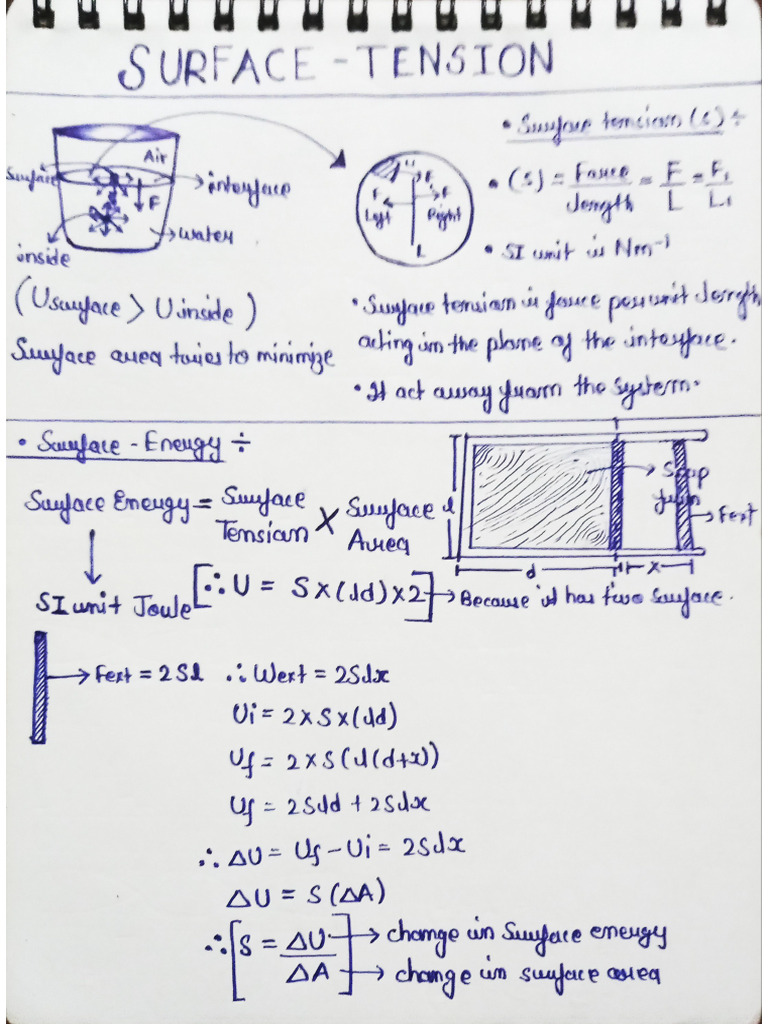 SURFACE - TENSION
Air
Surface
interface
F
water
inside
(Usurface > Uinside)
Surface area tries to minimize
F
F
F
Left
Right
L
• Surface tension (s) ÷
• (s) = Force/length = F/L = F1/L1
• SI unit is Nm⁻¹
• Surface tension is force per unit length
acting in the plane of the interface.
• It act away from the system.
• Surface - Energy ÷
Surface Energy = Surface Tension × Surface Area
SI unit Joule
[∴ U = S×(ld)×2] → Because it has two surface.
l
Soap
film
Fext
d
x
Fext = 2Sl
∴ Wext = 2Slx
Ui = 2×S×(ld)
Uf = 2×S(l(d+x))
Uf = 2Sld + 2Slx
∴ ΔU = Uf - Ui = 2Slx
ΔU = S(ΔA)
∴ [S = ΔU/ΔA]
→ change in Surface energy
→ change in surface area